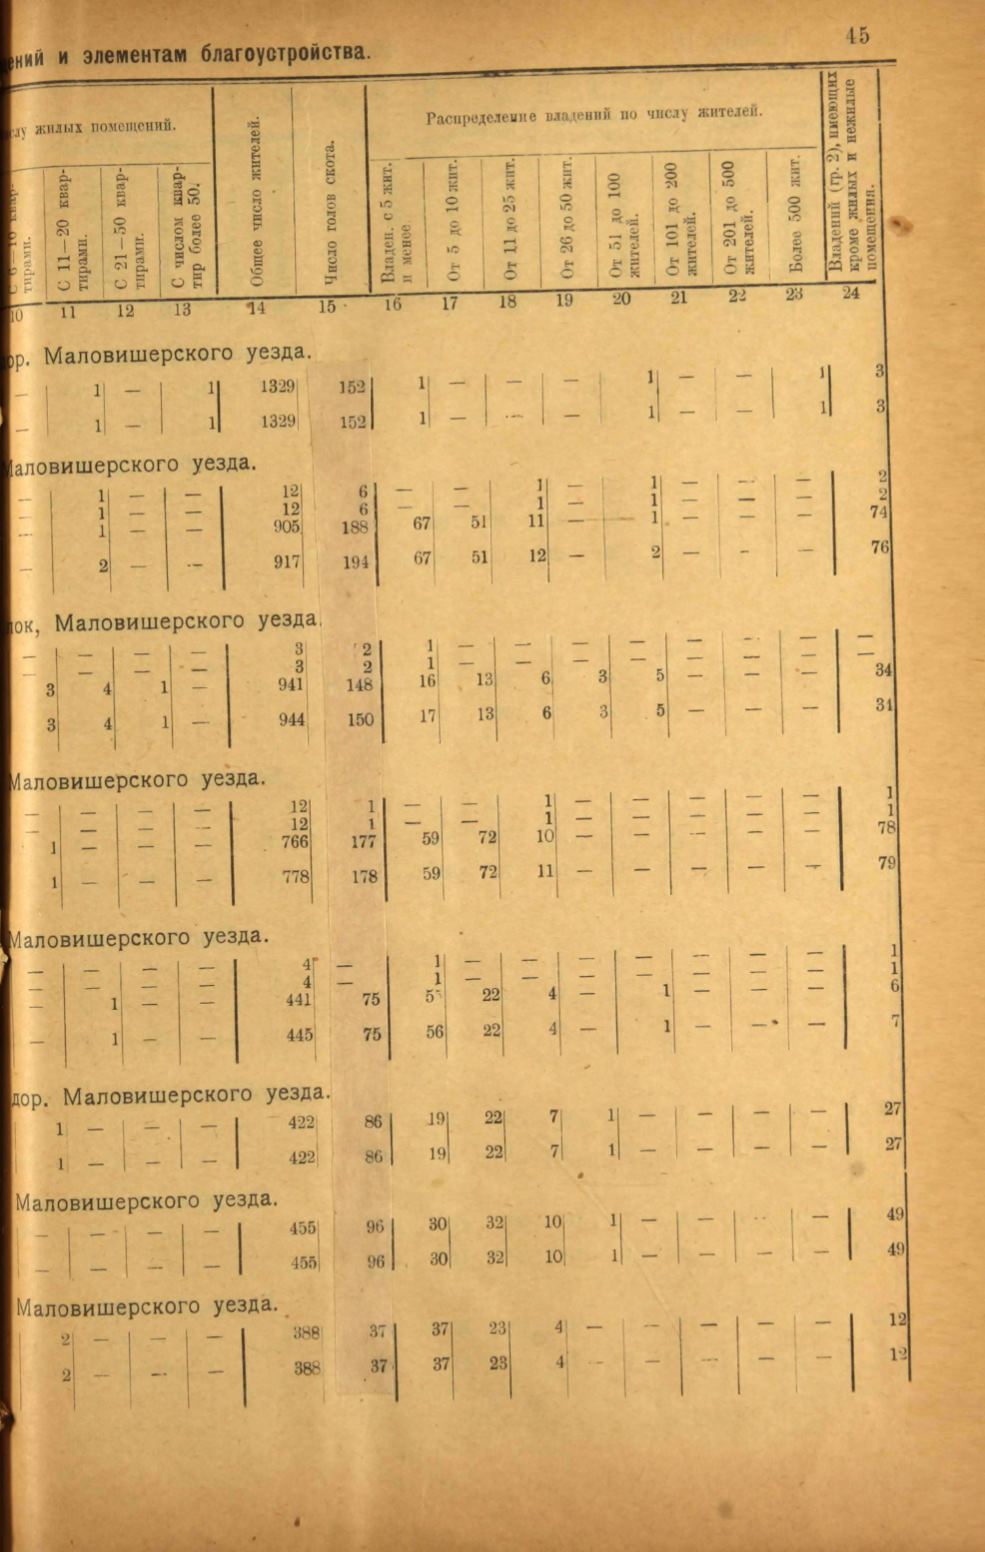 45
ений и элементам благоустройства.
слу жилых помещений.
Общее число жителей.
Число голов скота.
Распределение владений по числу жителей.
Владений (гр. 2), имеющих кроме жилых и нежилые помещения.
С 6—10 квартирами.
С 11—20 квартирами.
С 21—50 квартирами.
С числом квартир более 50.
Владен. с 5 жит. и менее.
От 5 до 10 жит.
От 11 до 25 жит.
От 26 до 50 жит.
От 51 до 100 жителей.
От 101 до 200 жителей.
От 201 до 500 жителей.
Более 500 жит.
10 11 12 13 14 15 16 17 18 19 20 21 22 23 24
ор. Маловишерского уезда.
— 1 — 1 1329 152 1 — — — 1 — — 1 3
— 1 — 1 1329 152 1 — — — 1 — — 1 3
Маловишерского уезда.
— 1 — — 12 6 — — 1 — 1 — — — 2
— 1 — — 12 6 — — 1 — 1 — — — 2
— 1 — — 905 188 67 51 11 — 1 — — — 74
— 2 — — 917 194 67 51 12 — 2 — — — 76
лок, Маловишерского уезда.
— — — — 3 2 1 — — — — — — — —
— — — — 3 2 1 — — — — — — — —
3 4 1 — 941 148 16 13 6 3 5 — — — 34
3 4 1 — 944 150 17 13 6 3 5 — — — 34
Маловишерского уезда.
— — — — 12 1 — — 1 — — — — — 1
— — — — 12 1 — — 1 — — — — — 1
1 — — — 766 177 59 72 10 — — — — — 78
1 — — — 778 178 59 72 11 — — — — — 79
Маловишерского уезда.
— — — — 4 — 1 — — — — — — — 1
— — — — 4 — 1 — — — — — — — 1
— 1 — — 441 75 5 22 4 — 1 — — — 6
— 1 — — 445 75 56 22 4 — 1 — — — 7
дор. Маловишерского уезда.
1 — — — 422 86 19 22 7 1 — — — — 27
1 — — — 422 86 19 22 7 1 — — — — 27
Маловишерского уезда.
— — — — 455 96 30 32 10 1 — — — — 49
— — — — 455 96 30 32 10 1 — — — — 49
Маловишерского уезда.
2 — — — 388 37 37 23 4 — — — — — 12
2 — — — 388 37 37 23 4 — — — — — 12